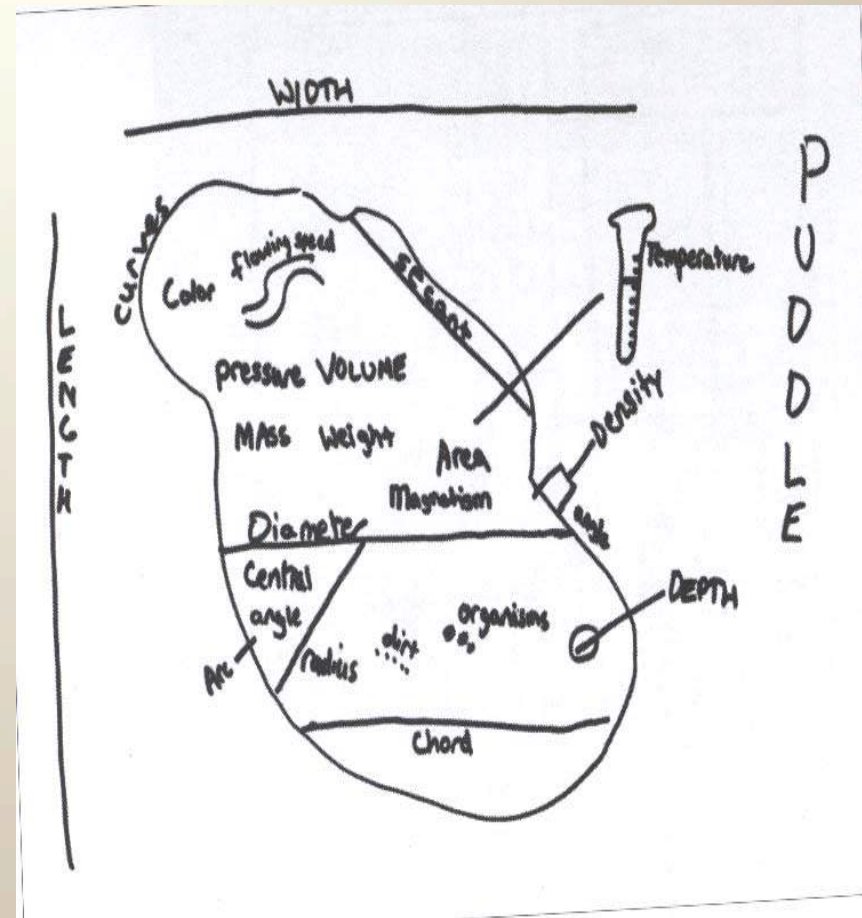 WIDTH
PUDDLE
LENGTH
curves
Color
flowing speed
secant
Temperature
pressure VOLUME
MASS Weight
Area
Magnatism
Density
angle
Diameter
Central
angle
Arc
radius
dirt
organisms
DEPTH
Chord